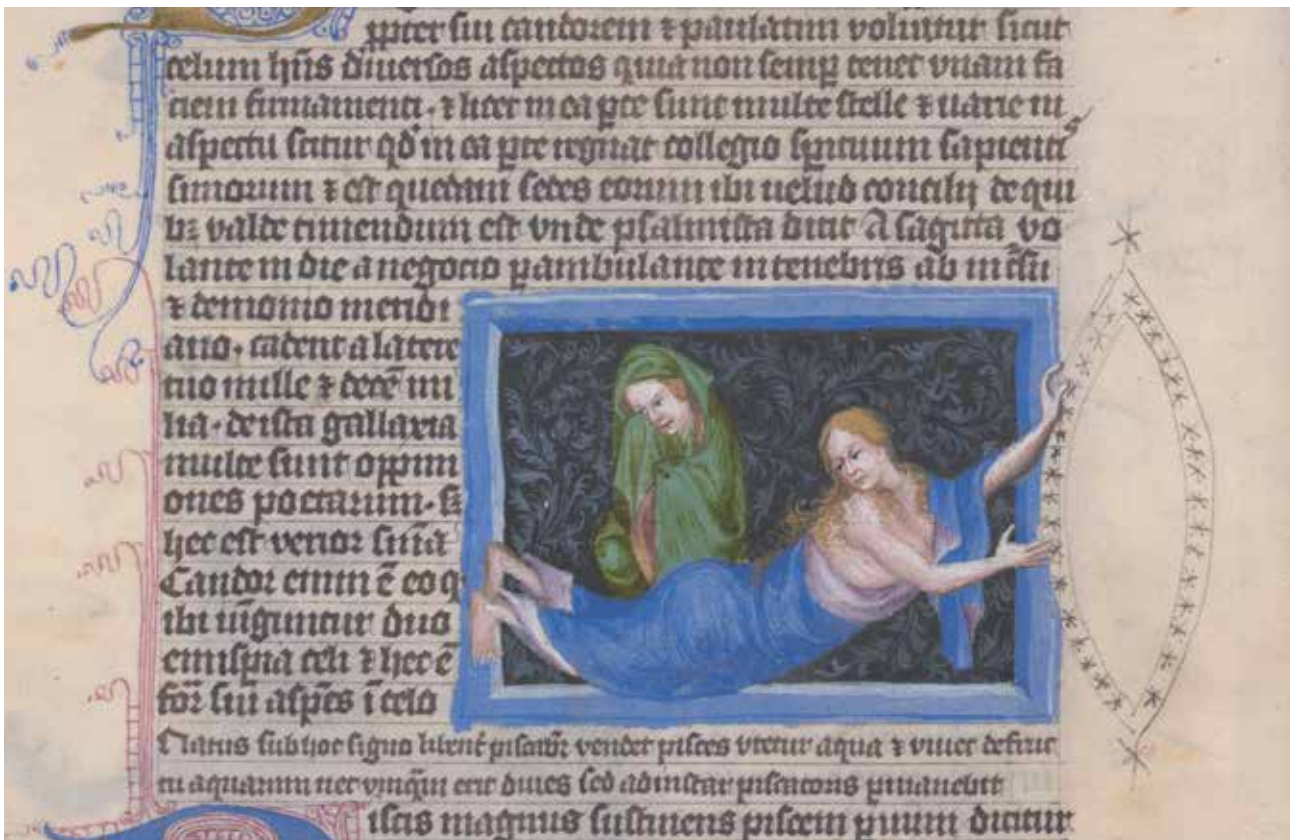 ppter sui candorem ⁊ paulatim voluitur sicut
celum hn̄s diuersos aspectos quia non semp tenet vnam fa
ciem firmamenti. ⁊ licet in ea pte sunt multe stelle ⁊ uarie in
aspectu scitur qd in ea pte regnat collegio spirituum sapientis
simorum ⁊ est quedam sedes eorum ibi uelud concilij de qui
bꝫ valde timendum est vnde psalmista dicit A sagitta vo
lante in die a negocio pambulante in tenebris ab
⁊ demonio meridi
ano. cadent a latere
tuo mille ⁊ decē mi
lia. de ista gallaxia
multe sunt oppini
ones poetarum. sꝫ
hec est verior sn̄ia
Candor enim ē eo qꝫ
ibi iūguntur duo
emispia celi ⁊ hec ē
for sui aspc̄s ī celo
Natus sub hoc signo libent vendet pisces vtetur aqua ⁊ viuet de fruc
tu aquarum nec vnqm̄ erit diues sed ad instar piscatoris
iscis magnus sustinens piscem dicitur